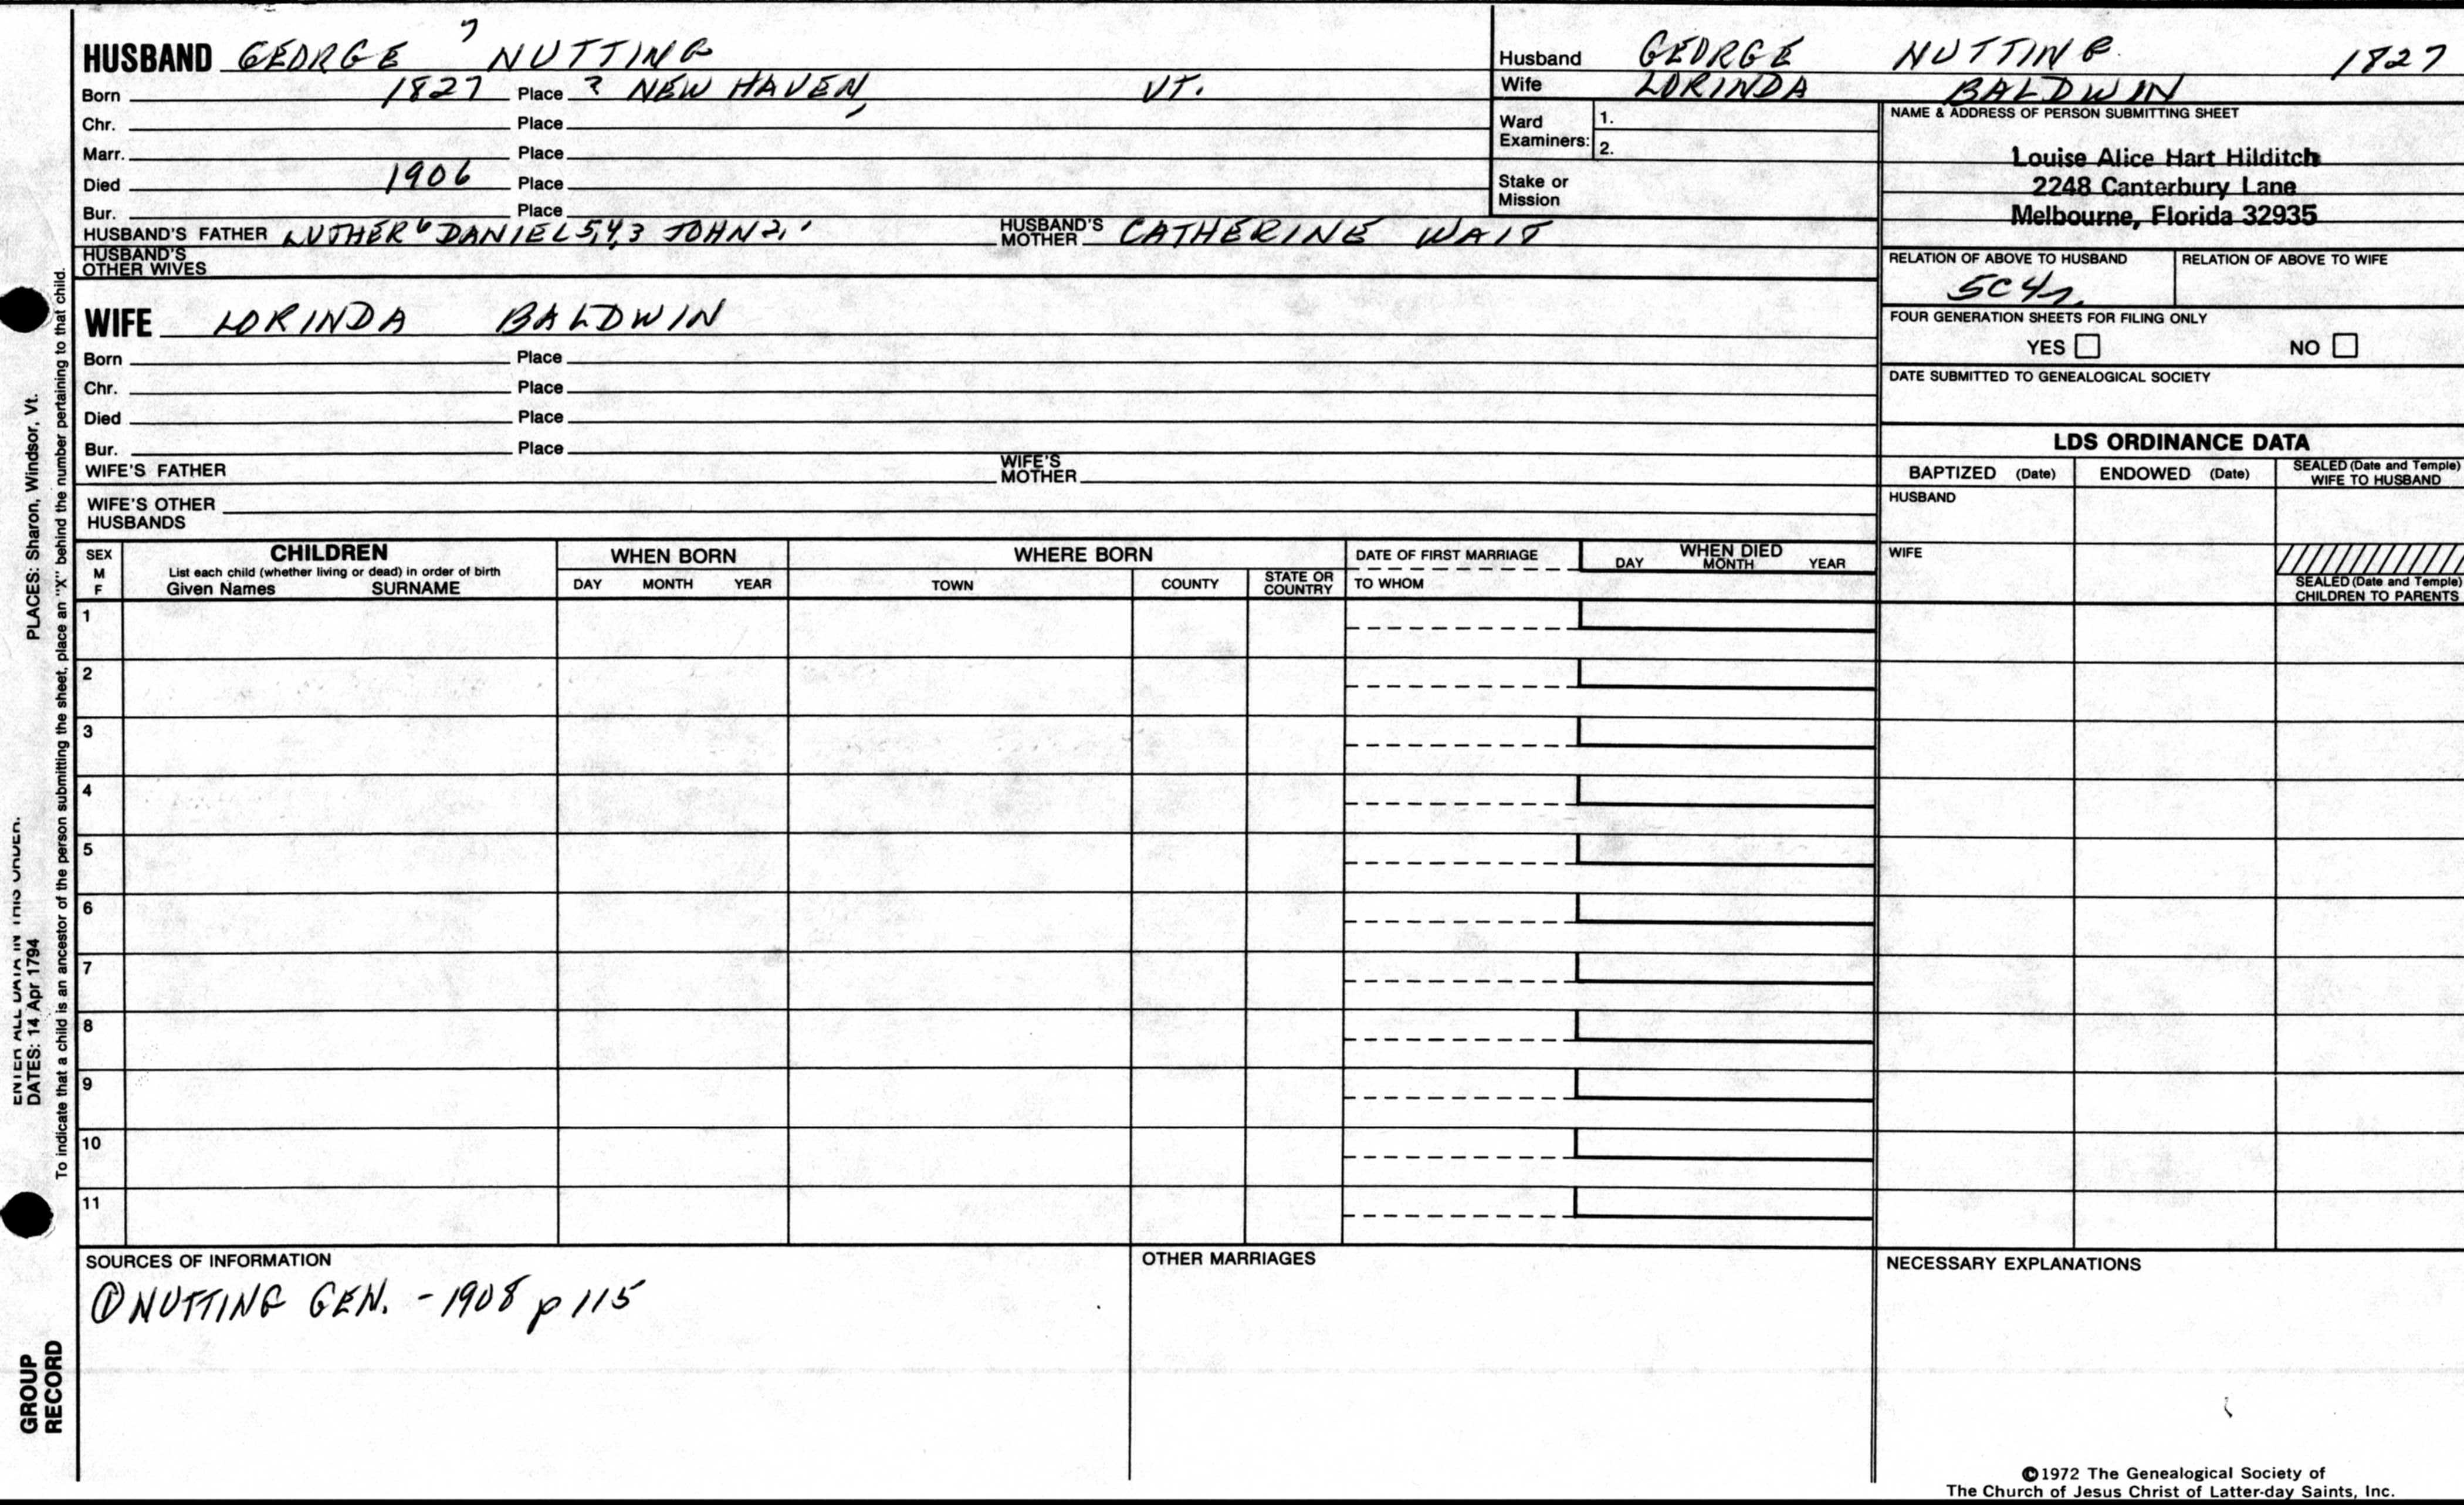 HUSBAND GEORGE 7 NUTTING
Born 1827 Place ? NEW HAVEN, VT.
Chr. Place
Marr. Place
Died 1906 Place
Bur. Place
HUSBAND'S FATHER LUTHER 6 DANIEL 5,4,3 JOHN 2,1 HUSBAND'S MOTHER CATHERINE WAIT
HUSBAND'S OTHER WIVES
WIFE LORINDA BALDWIN
Born Place
Chr. Place
Died Place
Bur. Place
WIFE'S FATHER WIFE'S MOTHER
WIFE'S OTHER HUSBANDS
Husband GEORGE NUTTING 1827
Wife LORINDA BALDWIN
Ward Examiners: 1.
2.
Stake or Mission
NAME & ADDRESS OF PERSON SUBMITTING SHEET
Louise Alice Hart Hilditch
2248 Canterbury Lane
Melbourne, Florida 32935
RELATION OF ABOVE TO HUSBAND RELATION OF ABOVE TO WIFE
5C4r
FOUR GENERATION SHEETS FOR FILING ONLY
YES NO
DATE SUBMITTED TO GENEALOGICAL SOCIETY
LDS ORDINANCE DATA
BAPTIZED (Date) ENDOWED (Date) SEALED (Date and Temple) WIFE TO HUSBAND
HUSBAND
WIFE
SEALED (Date and Temple) CHILDREN TO PARENTS
SEX M F
CHILDREN
List each child (whether living or dead) in order of birth
Given Names SURNAME
WHEN BORN
DAY MONTH YEAR
WHERE BORN
TOWN COUNTY STATE OR COUNTRY
DATE OF FIRST MARRIAGE
TO WHOM
WHEN DIED
DAY MONTH YEAR
1
2
3
4
5
6
7
8
9
10
11
SOURCES OF INFORMATION
① NUTTING GEN. - 1908 p 115
OTHER MARRIAGES
NECESSARY EXPLANATIONS
©1972 The Genealogical Society of
The Church of Jesus Christ of Latter-day Saints, Inc.
ENTER ALL DATA IN THIS ORDER.
DATES: 14 Apr 1794 PLACES: Sharon, Windsor, Vt.
To indicate that a child is an ancestor of the person submitting the sheet, place an "X" behind the number pertaining to that child.
GROUP
RECORD